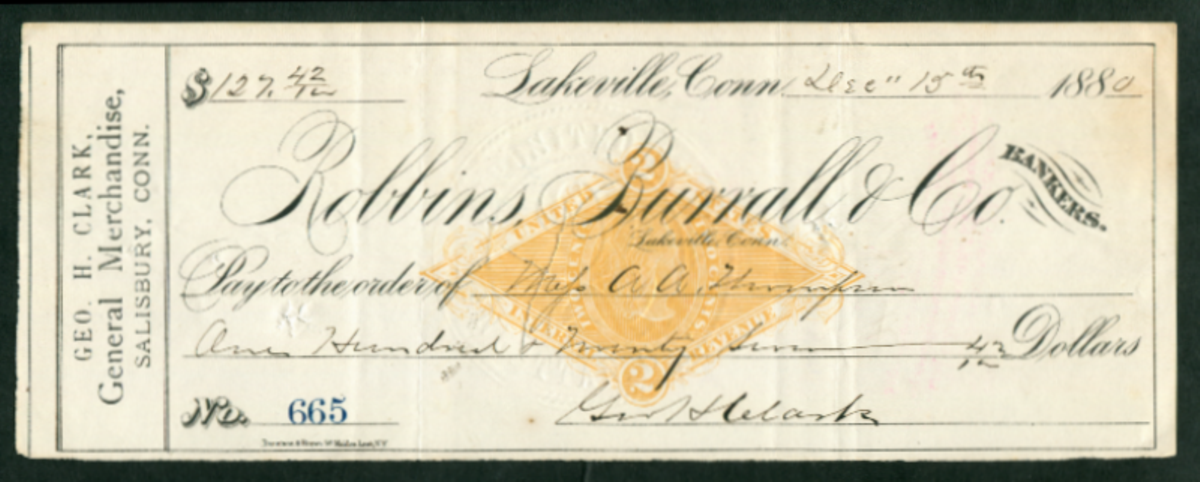 GEO. H. CLARK,
General Merchandise,
SALISBURY, CONN.
$127.42/100
Lakeville, Conn. Dec 15th 1880
Robbins, Burrall & Co. BANKERS.
Lakeville, Conn.
Pay to the order of Miss A A Thompson
One Hundred & Twenty Seven 42/100 Dollars
No. 665
Geo H Clark
2
UNITED STATES
INTERNAL REVENUE
2